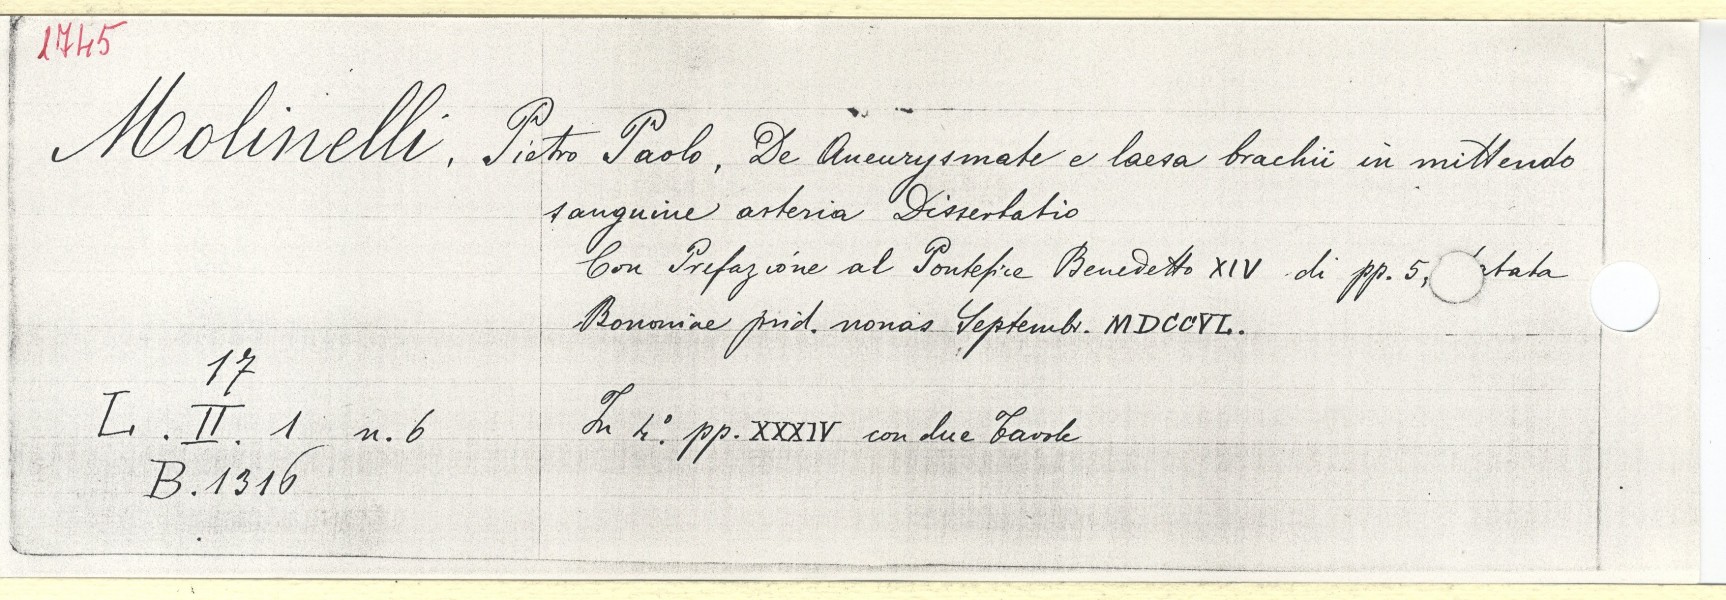 1745
Molinelli, Pietro Paolo, De Aneurysmate e laesa brachii in mittendo
sanguine arteria Dissertatio
Con Prefazione al Pontefice Benedetto XIV di pp. 5,
Bononiae prid. nonas Septembr. MDCCVL.
17
L. II. 1 n. 6
In 4.° pp. XXXIV con due Tavole
B. 1316